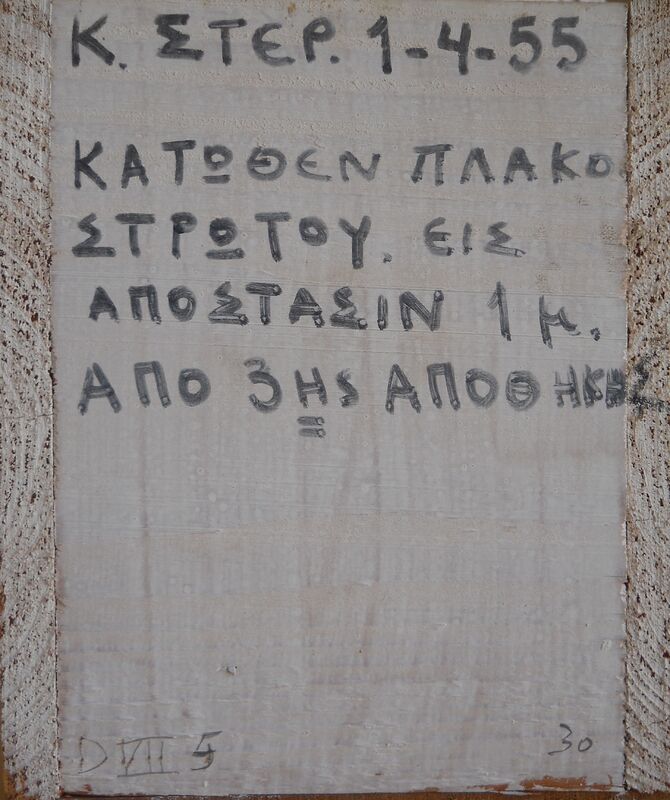 Κ. ΣΤΕΡ. 1-4-55
ΚΑΤΩΘΕΝ ΠΛΑΚΟ
ΣΤΡΩΤΟΥ. ΕΙΣ
ΑΠΟΣΤΑΣΙΝ 1 μ.
ΑΠΟ 3ης ΑΠΟΘΗΚΗΣ
D VII 5 30